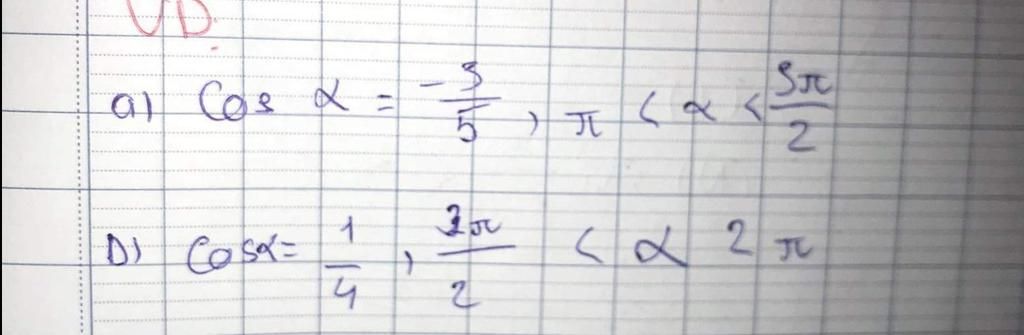 VD.
a) Cos α = -3/5, π < α < 3π/2
b) Cosα = 1/4, 3π/2 < α 2π